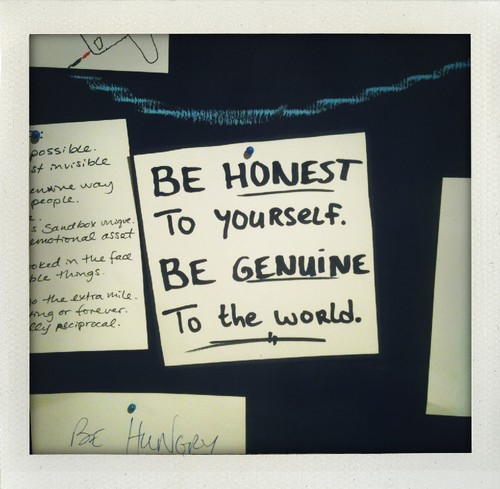 possible.
st invisible
enuine way
people.
e.
s Sandbox unique.
emotional asset
oked in the face
ble things.
o the extra mile.
ing or forever.
lly reciprocal.
BE HONEST
To yourself.
BE GENUINE
To the world.
BE HUNGRY